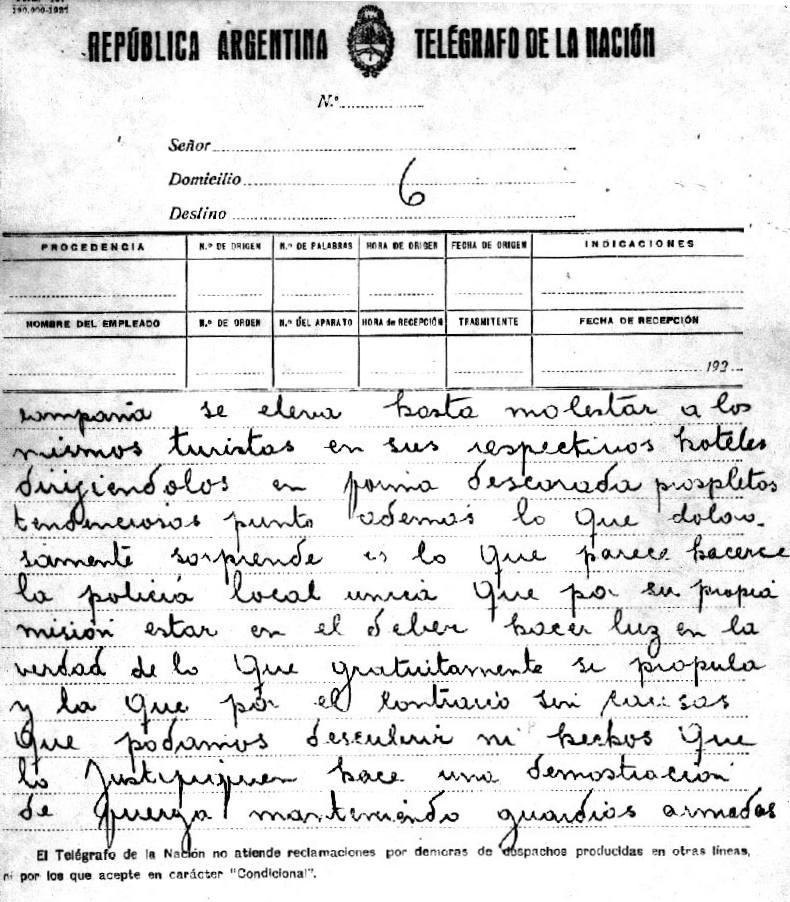 190,000-1927
REPÚBLICA ARGENTINA TELÉGRAFO DE LA NACIÓN
N.º
Señor
Domicilio
6
Destino
PROCEDENCIA N.º DE ORIGEN N.º DE PALABRAS HORA DE ORIGEN FECHA DE ORIGEN INDICACIONES
NOMBRE DEL EMPLEADO N.º DE ORDEN N.º DEL APARATO HORA de RECEPCIÓN TRASMITENTE FECHA DE RECEPCIÓN
192
campaña se eleva hasta molestar a los
mismos turistas en sus respectivos hoteles
dirigiendolos en forma descarada prospletos
tendenciosas punto ademas lo que doloro-
samente sorprende es lo que parece hacerce
la policia local unica que por su propia
misión estar en el deber hacer luz en la
verdad de lo que gratuitamente se propula
y la que por el contrario sin causas
que podamos descubrir ni hechos que
lo justifiquen hace una demostración
de fuerza manteniendo guardias armadas
El Telégrafo de la Nación no atiende reclamaciones por demoras de despachos producidas en otras líneas,
ni por los que acepte en carácter "Condicional".